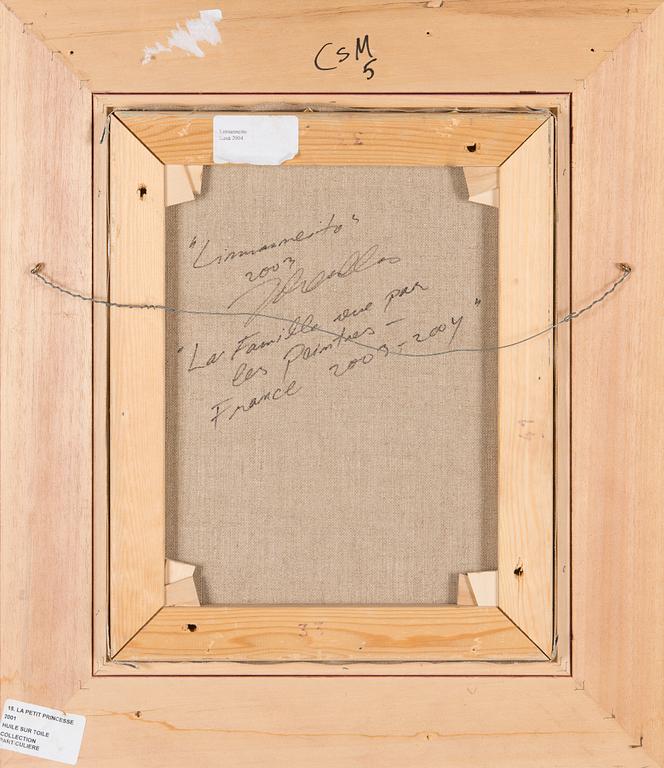 CSM
5
Linnanneito
2004
"Linnanneito"
2003
"La Famille vue par
les Peintres –
France 2003–2004"
15. LA PETIT PRINCESSE
2001
HUILE SUR TOILE
COLLECTION
PARTICULIERE